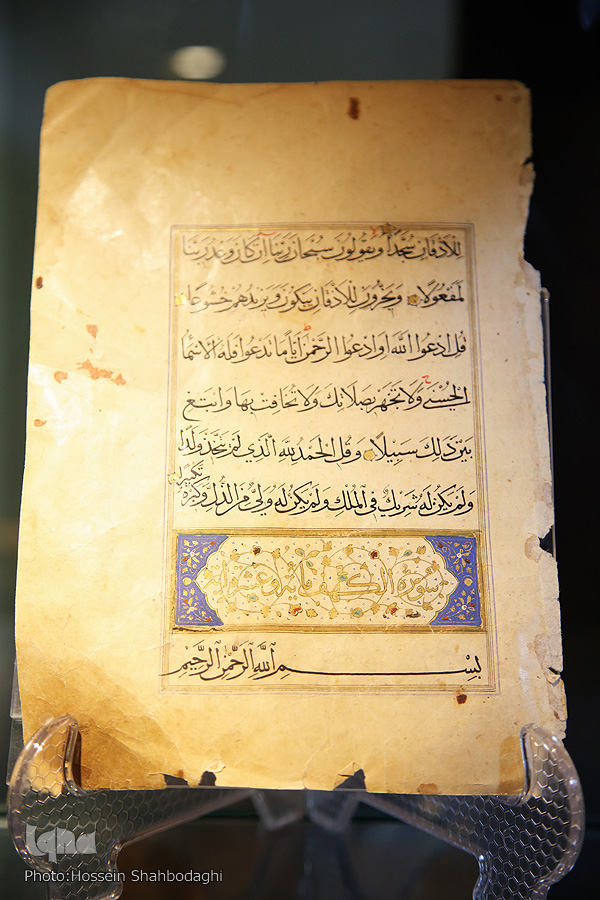 لِلْأَذْقَانِ سُجَّدًا وَيَقُولُونَ سُبْحَانَ رَبِّنَا إِنْ كَانَ وَعْدُ رَبِّنَا
لَمَفْعُولًا وَيَخِرُّونَ لِلْأَذْقَانِ يَبْكُونَ وَيَزِيدُهُمْ خُشُوعًا
قُلِ ادْعُوا اللَّهَ أَوِ ادْعُوا الرَّحْمَنَ أَيًّا مَا تَدْعُوا فَلَهُ الْأَسْمَا
الْحُسْنَى وَلَا تَجْهَرْ بِصَلَاتِكَ وَلَا تُخَافِتْ بِهَا وَابْتَغِ
بَيْنَ ذَلِكَ سَبِيلًا وَقُلِ الْحَمْدُ لِلَّهِ الَّذِي لَمْ يَتَّخِذْ وَلَدًا
وَلَمْ يَكُنْ لَهُ شَرِيكٌ فِي الْمُلْكِ وَلَمْ يَكُنْ لَهُ وَلِيٌّ مِنَ الذُّلِّ وَكَبِّرْهُ تَكْبِيرًا
سورة الكهف مائة وعشر اية
بِسْمِ اللَّهِ الرَّحْمَنِ الرَّحِيمِ
Iqna
Photo:Hossein Shahbodaghi